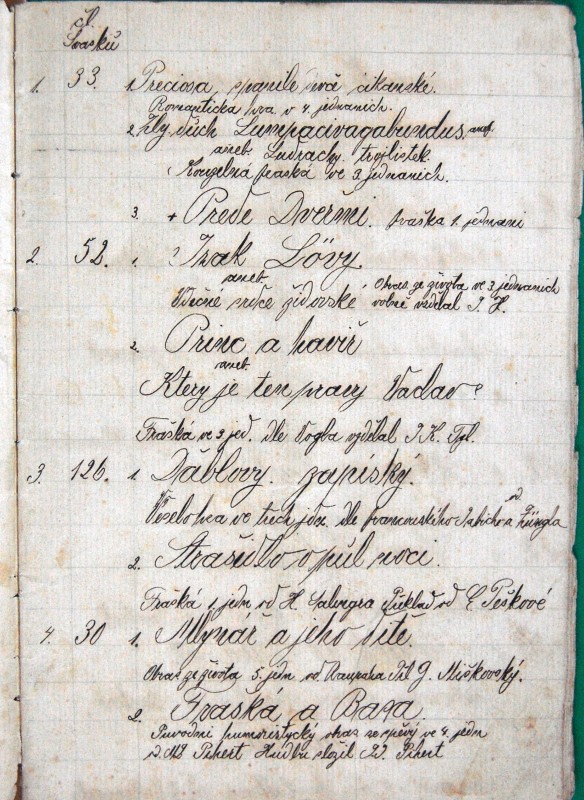 č.
Svasků
1. 33. 1. Preciosa, spanilé děvá cikanské.
Romantická hra v 4. jednaních.
2. Zlý duch Lumpacivagabundus,
aneb. Ludračky trojlistek.
Kouzelná fraška ve 3. jednanich.
3. + Prede Dveřmi. fraška 1. jednani
2. 52. 1. Izak Lövy
aneb.
Vděčné srdce židovské Obraz ze života ve 3. jednanich
volně vzdělal J. H.
2. Princ a havíř
aneb.
Ktery je ten pravy Vaclav?
Fraška ve 3. jed. dle Vogla vzdělal J. K. Tyl.
3. 126. 1. Ďáblovy. zapísky.
Veselohra ve třech jdn. dle francouského
2. Strasidlo o půl noci.
Fraška 1 jedn od H. Salingra Překlad od E. Peškové
4. 30 1. Mlynář a jeho dítě.
Obraz ze života 5. jedn od Raupaka Přl J. Miškovský.
2. Fraská, a Basa.
Původní humoristycký obraz se spěvý ve 4. jedn
Pihert Hudbu složil Pihert